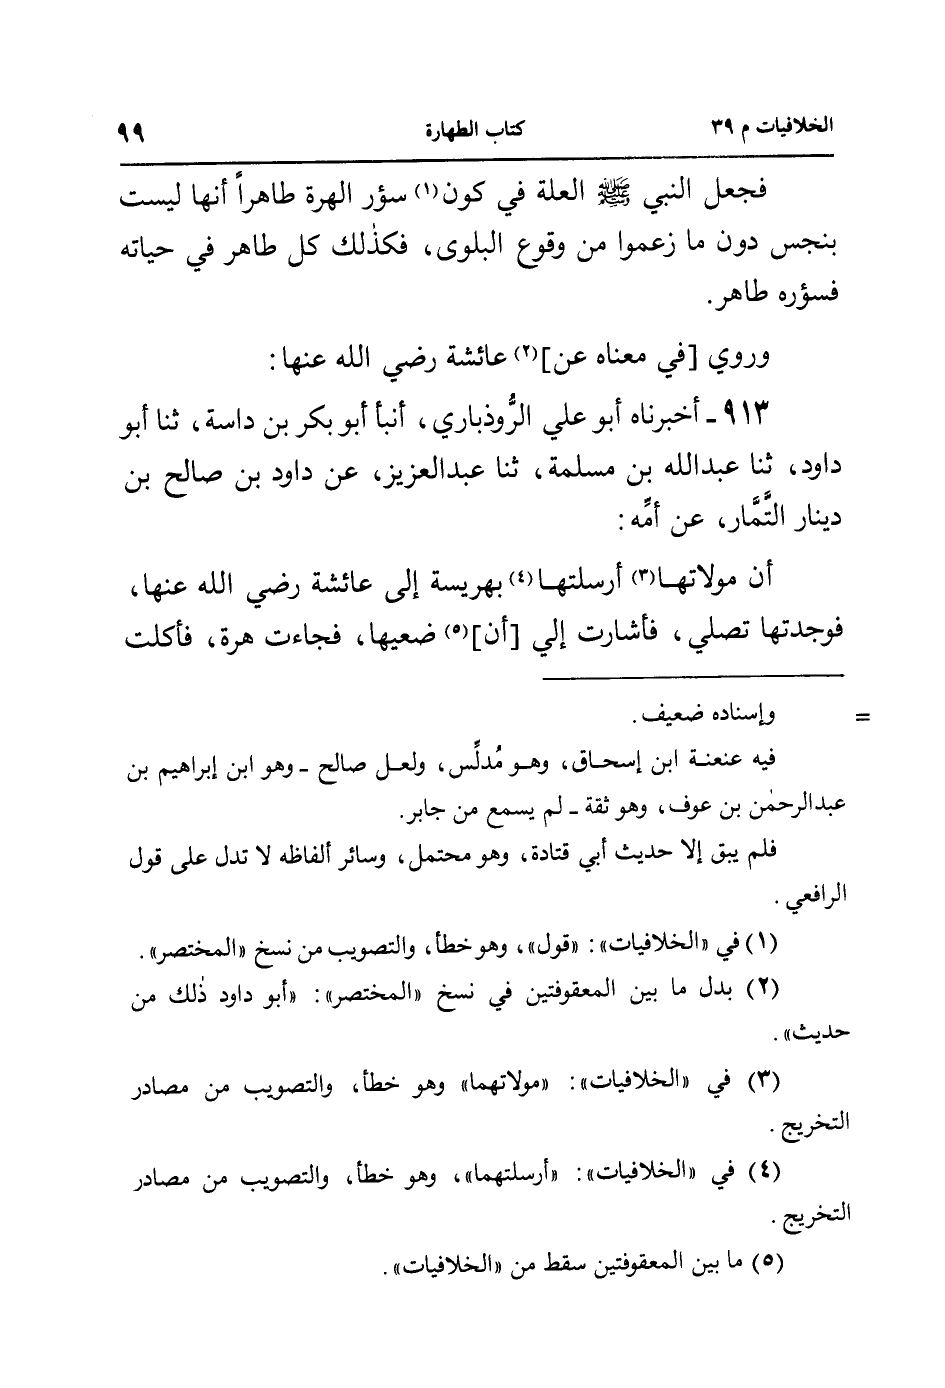 الخلافيات م ٣٩ كتاب الطهارة ٩٩
فجعل النبي ﷺ العلة في كون(١) سؤر الهرة طاهراً أنها ليست
بنجس دون ما زعموا من وقوع البلوى، فكذٰلك كل طاهر في حياته
فسؤره طاهر.
وروي [في معناه عن](٢) عائشة رضي الله عنها:
٩١٣ ـ أخبرناه أبو علي الرُّوذباري، أنبأ أبو بكر بن داسة، ثنا أبو
داود، ثنا عبدالله بن مسلمة، ثنا عبدالعزيز، عن داود بن صالح بن
دينار التَّمَّار، عن أمِّه:
أن مولاتهـا(٣) أرسلتهـا(٤) بهريسة إلى عائشة رضي الله عنها،
فوجدتها تصلي، فأشارت إلي [أن](٥) ضعيها، فجاءت هرة، فأكلت
= وإسناده ضعيف.
فيه عنعنـة ابن إسحـاق، وهـو مُدلِّس، ولعـل صالح ـ وهو ابن إبراهيم بن
عبدالرحمٰن بن عوف، وهو ثقة ـ لم يسمع من جابر.
فلم يبق إلا حديث أبي قتادة، وهو محتمل، وسائر ألفاظه لا تدل على قول
الرافعي.
(١) في «الخلافيات»: «قول»، وهو خطأ، والتصويب من نسخ «المختصر».
(٢) بدل ما بين المعقوفتين في نسخ «المختصر»: «أبو داود ذٰلك من
حديث».
(٣) في «الخلافيات»: «مولاتهما» وهو خطأ، والتصويب من مصادر
التخريج.
(٤) في «الخلافيات»: «أرسلتهما»، وهو خطأ، والتصويب من مصادر
التخريج.
(٥) ما بين المعقوفتين سقط من «الخلافيات».